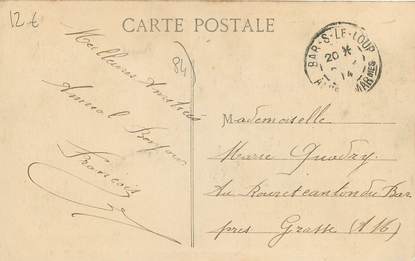 12 €
CARTE POSTALE
84
Meilleures Amitiés
Amical Bonjour
François
BAR-S-LE-LOUP
20
14
ALPES MARMES
Mademoiselle
Marie
Au Rouret canton du Bar
près Grasse (A M)